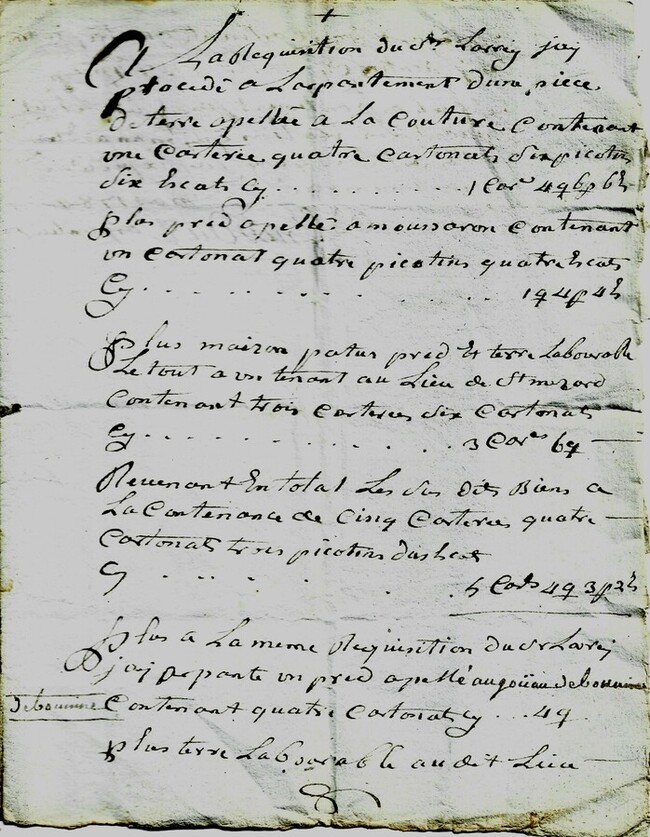 A La Requisition du Sr Larrey jay
procedé a Larpantement dune piece
de terre apellée a La Couture Contenant
une Carteree quatre Cartonats six picotins
six Escats Cy . . . . . . . . . . . 1 Cares 4q 6p 6es
plus pred apellé a moussaron Contenant
un Cartonat quatre picotins quatre Escats
Cy . . . . . . . . . . . 1q 4p 4es
plus maizon patus pred Et terre Labourable
Le tout a un tenant au Lieu de St mezard
Contenant trois Carterees six Cartonats
Cy . . . . . . . . . . . 3 Cares 6q
Revenant En total Les sus dits Biens a
La Contenance de Cinq Carterees quatre
Cartonats trois picotins deux Escats
Cy . . . . . 5 Cares 4q 3p 2es
plus a La meme Requisition du Sr Larrey
jay arpanté un pred apellé au goüau debouiine
debouiine Contenant quatre Cartonats Cy . . . 4q
plus terre Labourable audit Lieu